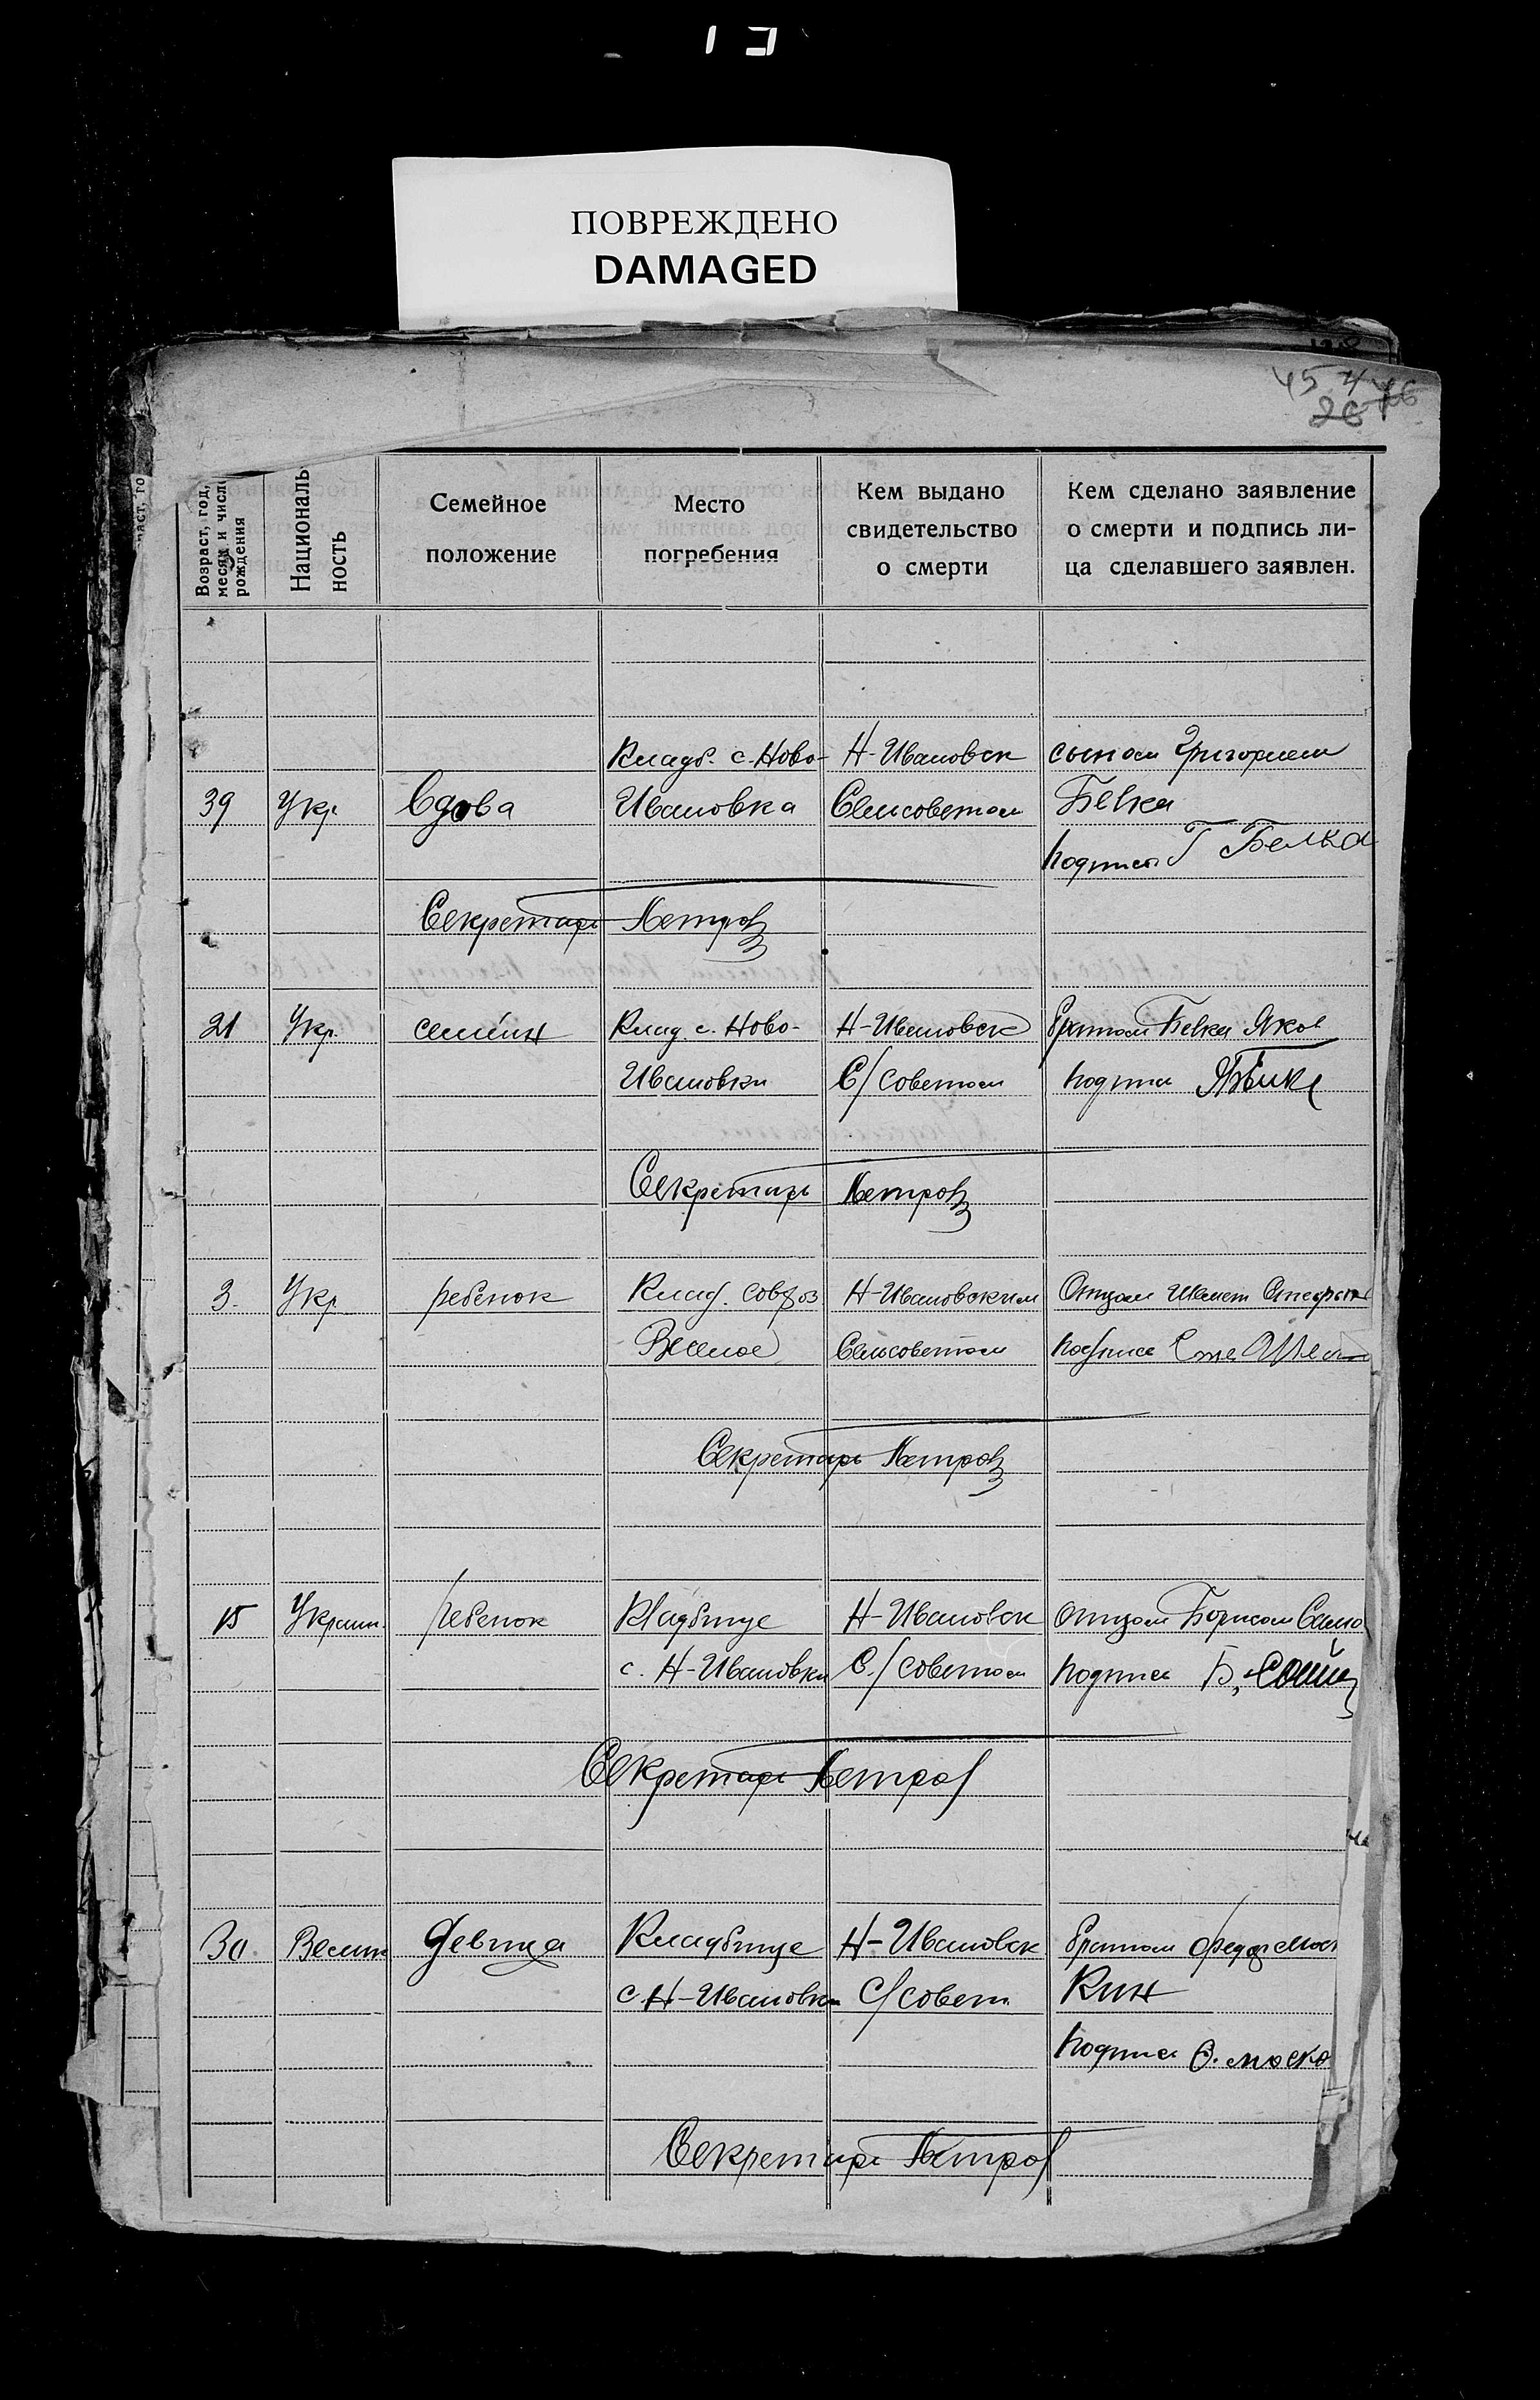 ПОВРЕЖДЕНО
DAMAGED
45
26
Возраст, год, месяц и число рождения
Националь
ность
Семейное
положение
Место
погребения
Кем выдано
свидетельство
о смерти
Кем сделано заявление
о смерти и подпись ли-
ца сделавшего заявлен.
Кладб. с. Ново- Н-Ивановск сыном Григорием
39 Укр Вдова Ивановка Сельсоветом Белка
подпись Г Белка
Секретарь Петров
21 Укр. семейн Клад. с. Ново- Н-Ивановск братом Белка Яков
Ивановки С/советом подпись
Секретарь Петров
3. Укр ребенок Клад. совхоз Н-Ивановским Отцом
Сельсоветом подпись
Секретарь Петров
15 Украин. ребенок Кладбище Н-Ивановск отцом Борисом
с. Н-Ивановки С./советом подпись Б.
Секретарь Петров
30. Велик девица Кладбище Н-Ивановск братом
с. Н-Ивановки С/совет. Кин
подпись
Секретарь Петров